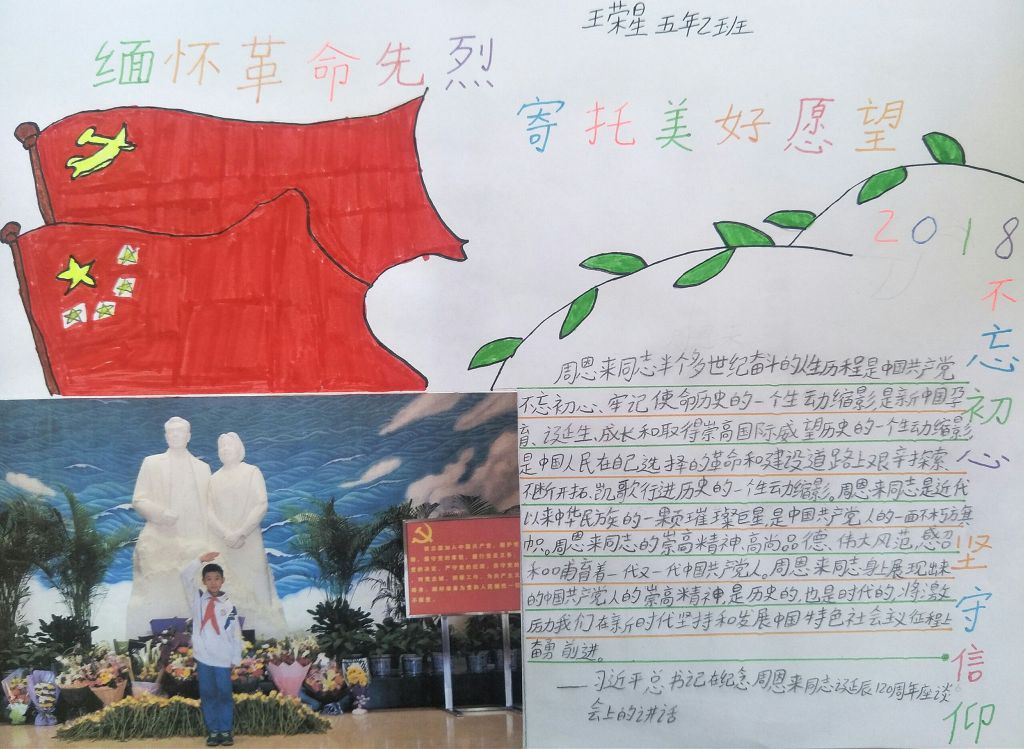 王荣星 五年2班
缅怀革命先烈
寄托美好愿望
2018
不忘初心
坚守信仰
周恩来同志半个多世纪奋斗的人生历程是中国共产党
不忘初心、牢记使命历史的一个生动缩影,是新中国孕
育、诞生、成长和取得崇高国际威望历史的一个生动缩影,
是中国人民在自己选择的革命和建设道路上艰辛探索、
不断开拓、凯歌行进历史的一个生动缩影。周恩来同志是近代
以来中华民族的一颗璀璨巨星,是中国共产党人的一面不朽旗
帜。周恩来同志的崇高精神、高尚品德、伟大风范,感召
和哺育着一代又一代中国共产党人。周恩来同志身上展现出来
的中国共产党人的崇高精神,是历史的,也是时代的,将激
励我们在新时代坚持和发展中国特色社会主义征程上
奋勇前进。
——习近平总书记在纪念周恩来同志诞辰120周年座谈
会上的讲话